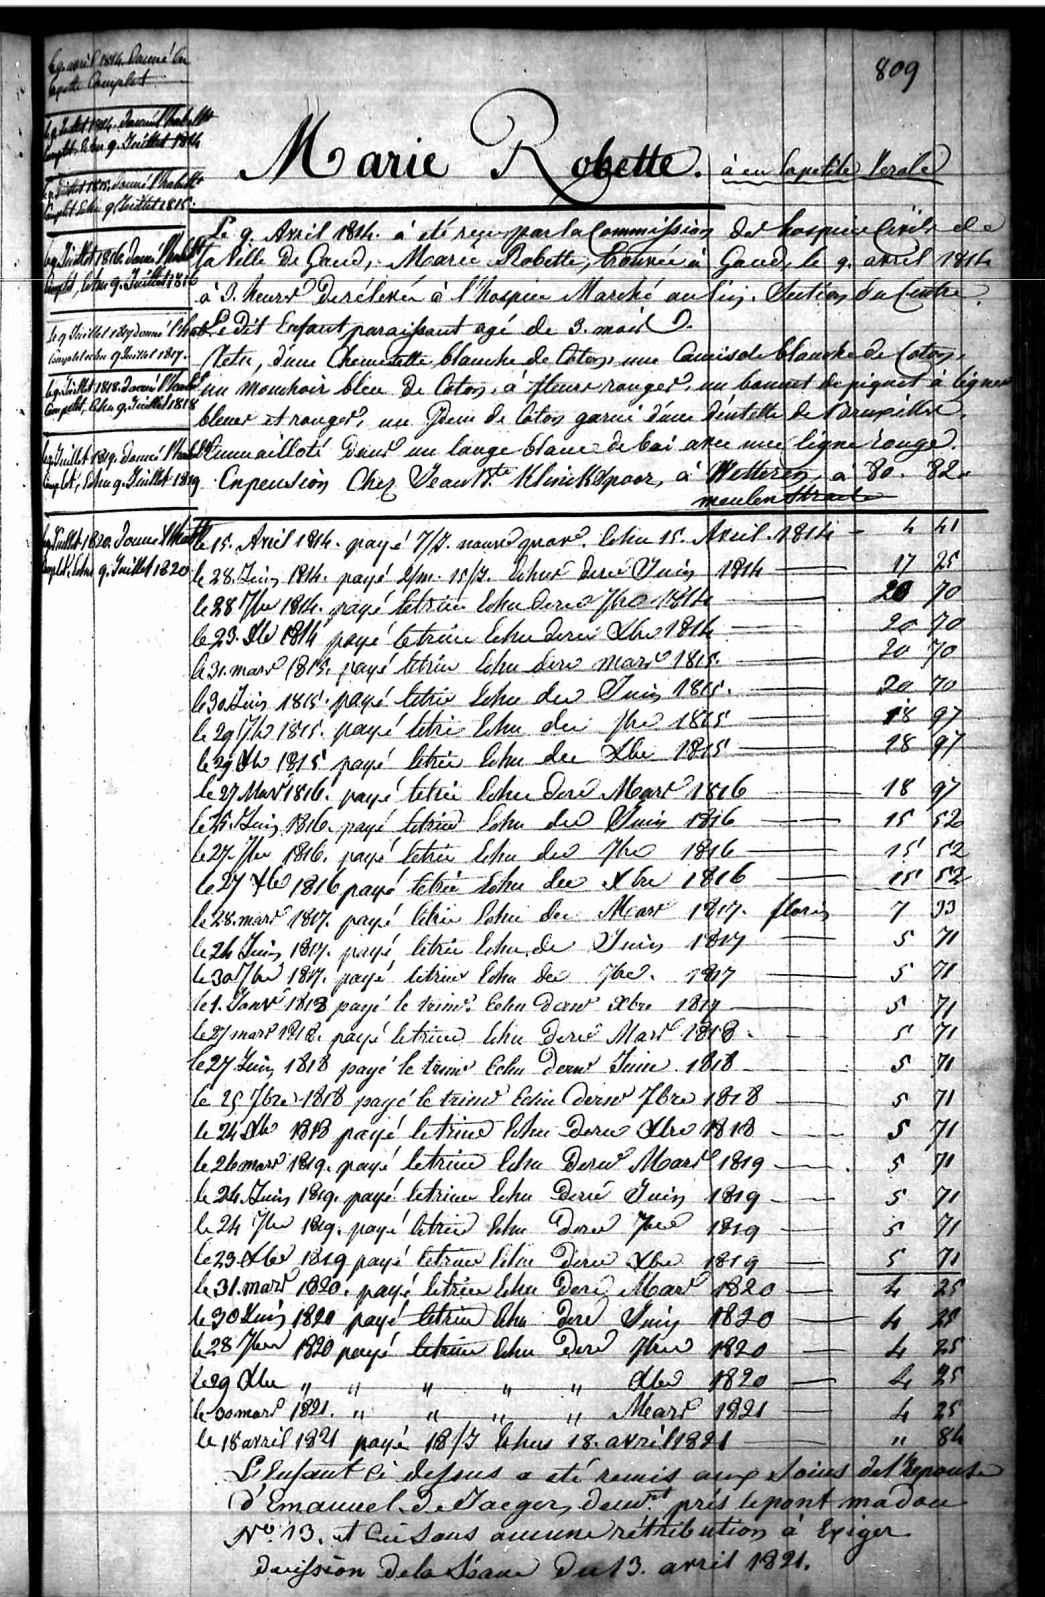 809
Marie Robette. à eu la petite Verole
le 9 avril 1814. Donné la
layette Complet
le 9 Juillet 1814. donné l'habillt
Complet. Echu 9. Juillet 1814
le 9 Juillet 1815. donné l'habillt
Complet Echu 9 Juillet 1815.
le 9 Juillet 1816 donné l'habillt
Complet, Echu 9. Juillet 1816
le 9 Juillet 1817 donné l'habt
Complet echu 9 Juillet 1817.
le 9. Juillet 1818. donné l'habt
Complet. Echu 9. Juillet 1818
le 9 Juillet 1819. donné l'habillt
Complet, Echu 9. Juillet 1819
le 9 Juillet 1820. Donné l'habt
Complet. Echu 9. Juillet 1820
Le 9. Avril 1814. à été reçu par la Commission des hospices Civils de
la Ville de Gand, Marie Robette, trouvée à Gand, le 9. avril 1814
à 9. heures De rélevée à l'hospice Marché au lin. Section du Centre.
Le dit Enfant paraissant agé de 3. mois
Vetu, d'une Chemisette blanche de Coton, une Camisole blanche de Coton,
un mouchoir bleu de Coton, à fleurs rouges, un bonnet de piquet à lignes
bleues et rouges, un Idem de Coton garni d'une dentelle de Bruxelles,
Emmailloté Dans un lange blanc de bai avec une ligne rouge.
En pension Chez Jean Bte Klinckspoor, à Wetteren, a 80. 82.
meulen Straete
le 15. Avril 1814. payé 7/J. nourd Echu 15. Avril. 1814 — 4 41
le 28. Juin 1814. payé 2/m. 15/J. Echus dere Juin 1814 — 17 25
le 28 7bre 1814. payé le trim Echu dere 7bre 1814 — 20 70
le 23. Xbre 1814 payé le trim Echu dere Xbre 1814 — 20 70
le 31. mars 1815. payé le trim Echu dere mars 1815. — 20 70
le 30 Juin 1815. payé le trim Echu der Juin 1815. — 20 70
le 29 7bre 1815. payé le trim Echu der 7bre 1815 — 18 97
le 29 Xbre 1815 payé le trim Echu der Xbre 1815 — 18 97
le 27 Mars 1816. payé le trim Echu dere Mars 1816 — 18 97
le 25. Juin 1816. payé le trim Echu der Juin 1816 — 15 52
le 27. 7bre 1816. payé le trim Echu der 7bre 1816 — 15 52
le 27 Xbre 1816 payé le trim Echu der Xbre 1816 — 15 52
le 28. mars 1817. payé le trim Echu der Mars 1817. florins 7 33
le 24 Juin 1817. payé le trim Echu der Juin 1817 — 5 71
le 30 7bre 1817. payé le trim Echu der 7bre. 1817 — 5 71
le 1. Janvr 1818 payé le trimr. Echu dernr Xbre 1817 — 5 71
le 27 mars 1818. payé le trim Echu dere Mars 1818. — 5 71
le 27 Juin 1818 payé le trimr Echu dernr Juin 1818 — 5 71
le 25 7bre 1818 payé le trimr Echu dernr 7bre 1818 — 5 71
le 24 Xbre 1818 payé le trim Echu dere Xbre 1818 — 5 71
le 26 mars 1819. payé le trim Echu dere Mars 1819 — 5 71
le 24 Juin 1819. payé le trim Echu dere Juin 1819 — 5 71
le 24 7bre 1819. payé le trim Echu dere 7bre 1819 — 5 71
le 23 Xbre 1819 payé le trim Echu dere Xbre 1819 — 5 71
le 31. mars 1820. payé le trim Echu dere Mars 1820 — 4 25
le 30 Juin 1820 payé le trim Echu dere Juin 1820 — 4 25
le 28 7bre 1820 payé le trim Echu dere 7bre 1820 — 4 25
le 29 Xbre " " " " " Xbre 1820 — 4 25
le 30 mars 1821. " " " " Mars 1821 — 4 25
le 18 avril 1821 payé 18/J Echus 18. avril 1821 — " 84
L'Enfant Ci dessus a eté remis aux Soins de l'Epouse
d'Emanuel De Jaeger, demt. près le pont madou
No. 13. et Ce Sans aucune rétribution à Exiger
decission de la Séance du 13. avril 1821.